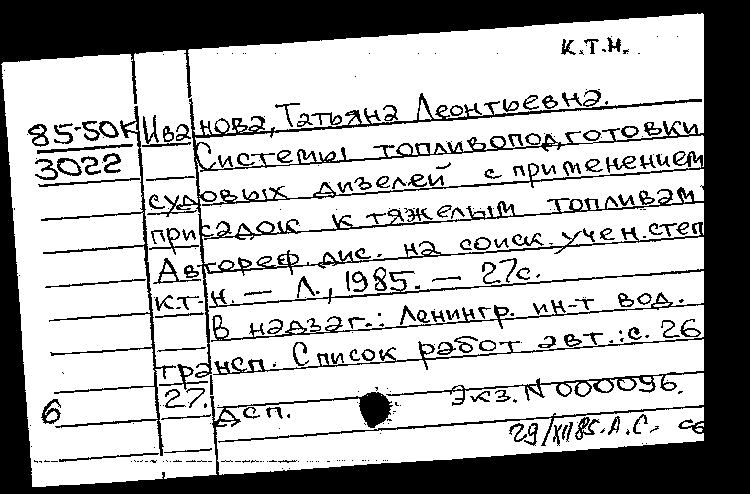 К.Т.Н.
85-50К Иванова, Татьяна Леонтьевна.
3022 Системы топливоподготовки
судовых дизелей с применением
присадок к тяжелым топливам:
Автореф. дис. на соиск. учен. степ
к.т.н. — Л., 1985. — 27с.
В надзаг.: Ленингр. ин-т вод.
трансп. Список работ авт.: с. 26
27.
6 Дсп. Экз. N 000096.
29/XII85. А.С.